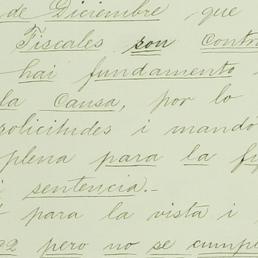 de Diciembre que
Fiscales son contra
hai fundamento
la causa, por lo
solicitudes i mando
plena para la fi
i sentencia.-
para la vista i
92 pero no se cumple